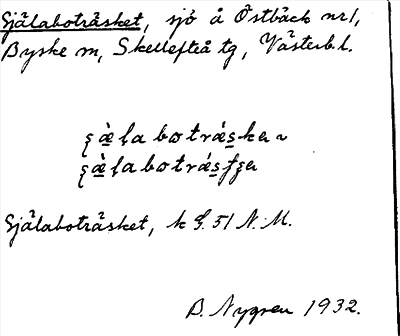 Själaboträsket, sjö å Östbäck nr 1,
Byske sn, Skellefteå tg, Västerb. l.
ʂæ̀labotrǽska ~
ʂæ̀labotrǽsʃʂa
Själaboträsket, k G. 51 N. M.
B. Nygren 1932.